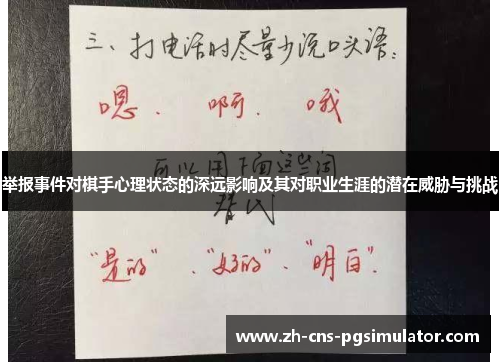 三、打电话时尽量少说口头语：
嗯. 啊. 哦
可以用下面这些词
举报事件对棋手心理状态的深远影响及其对职业生涯的潜在威胁与挑战
替代
“是的”、“好的”、“明白”.
www.zh-cns-pgsimulator.com